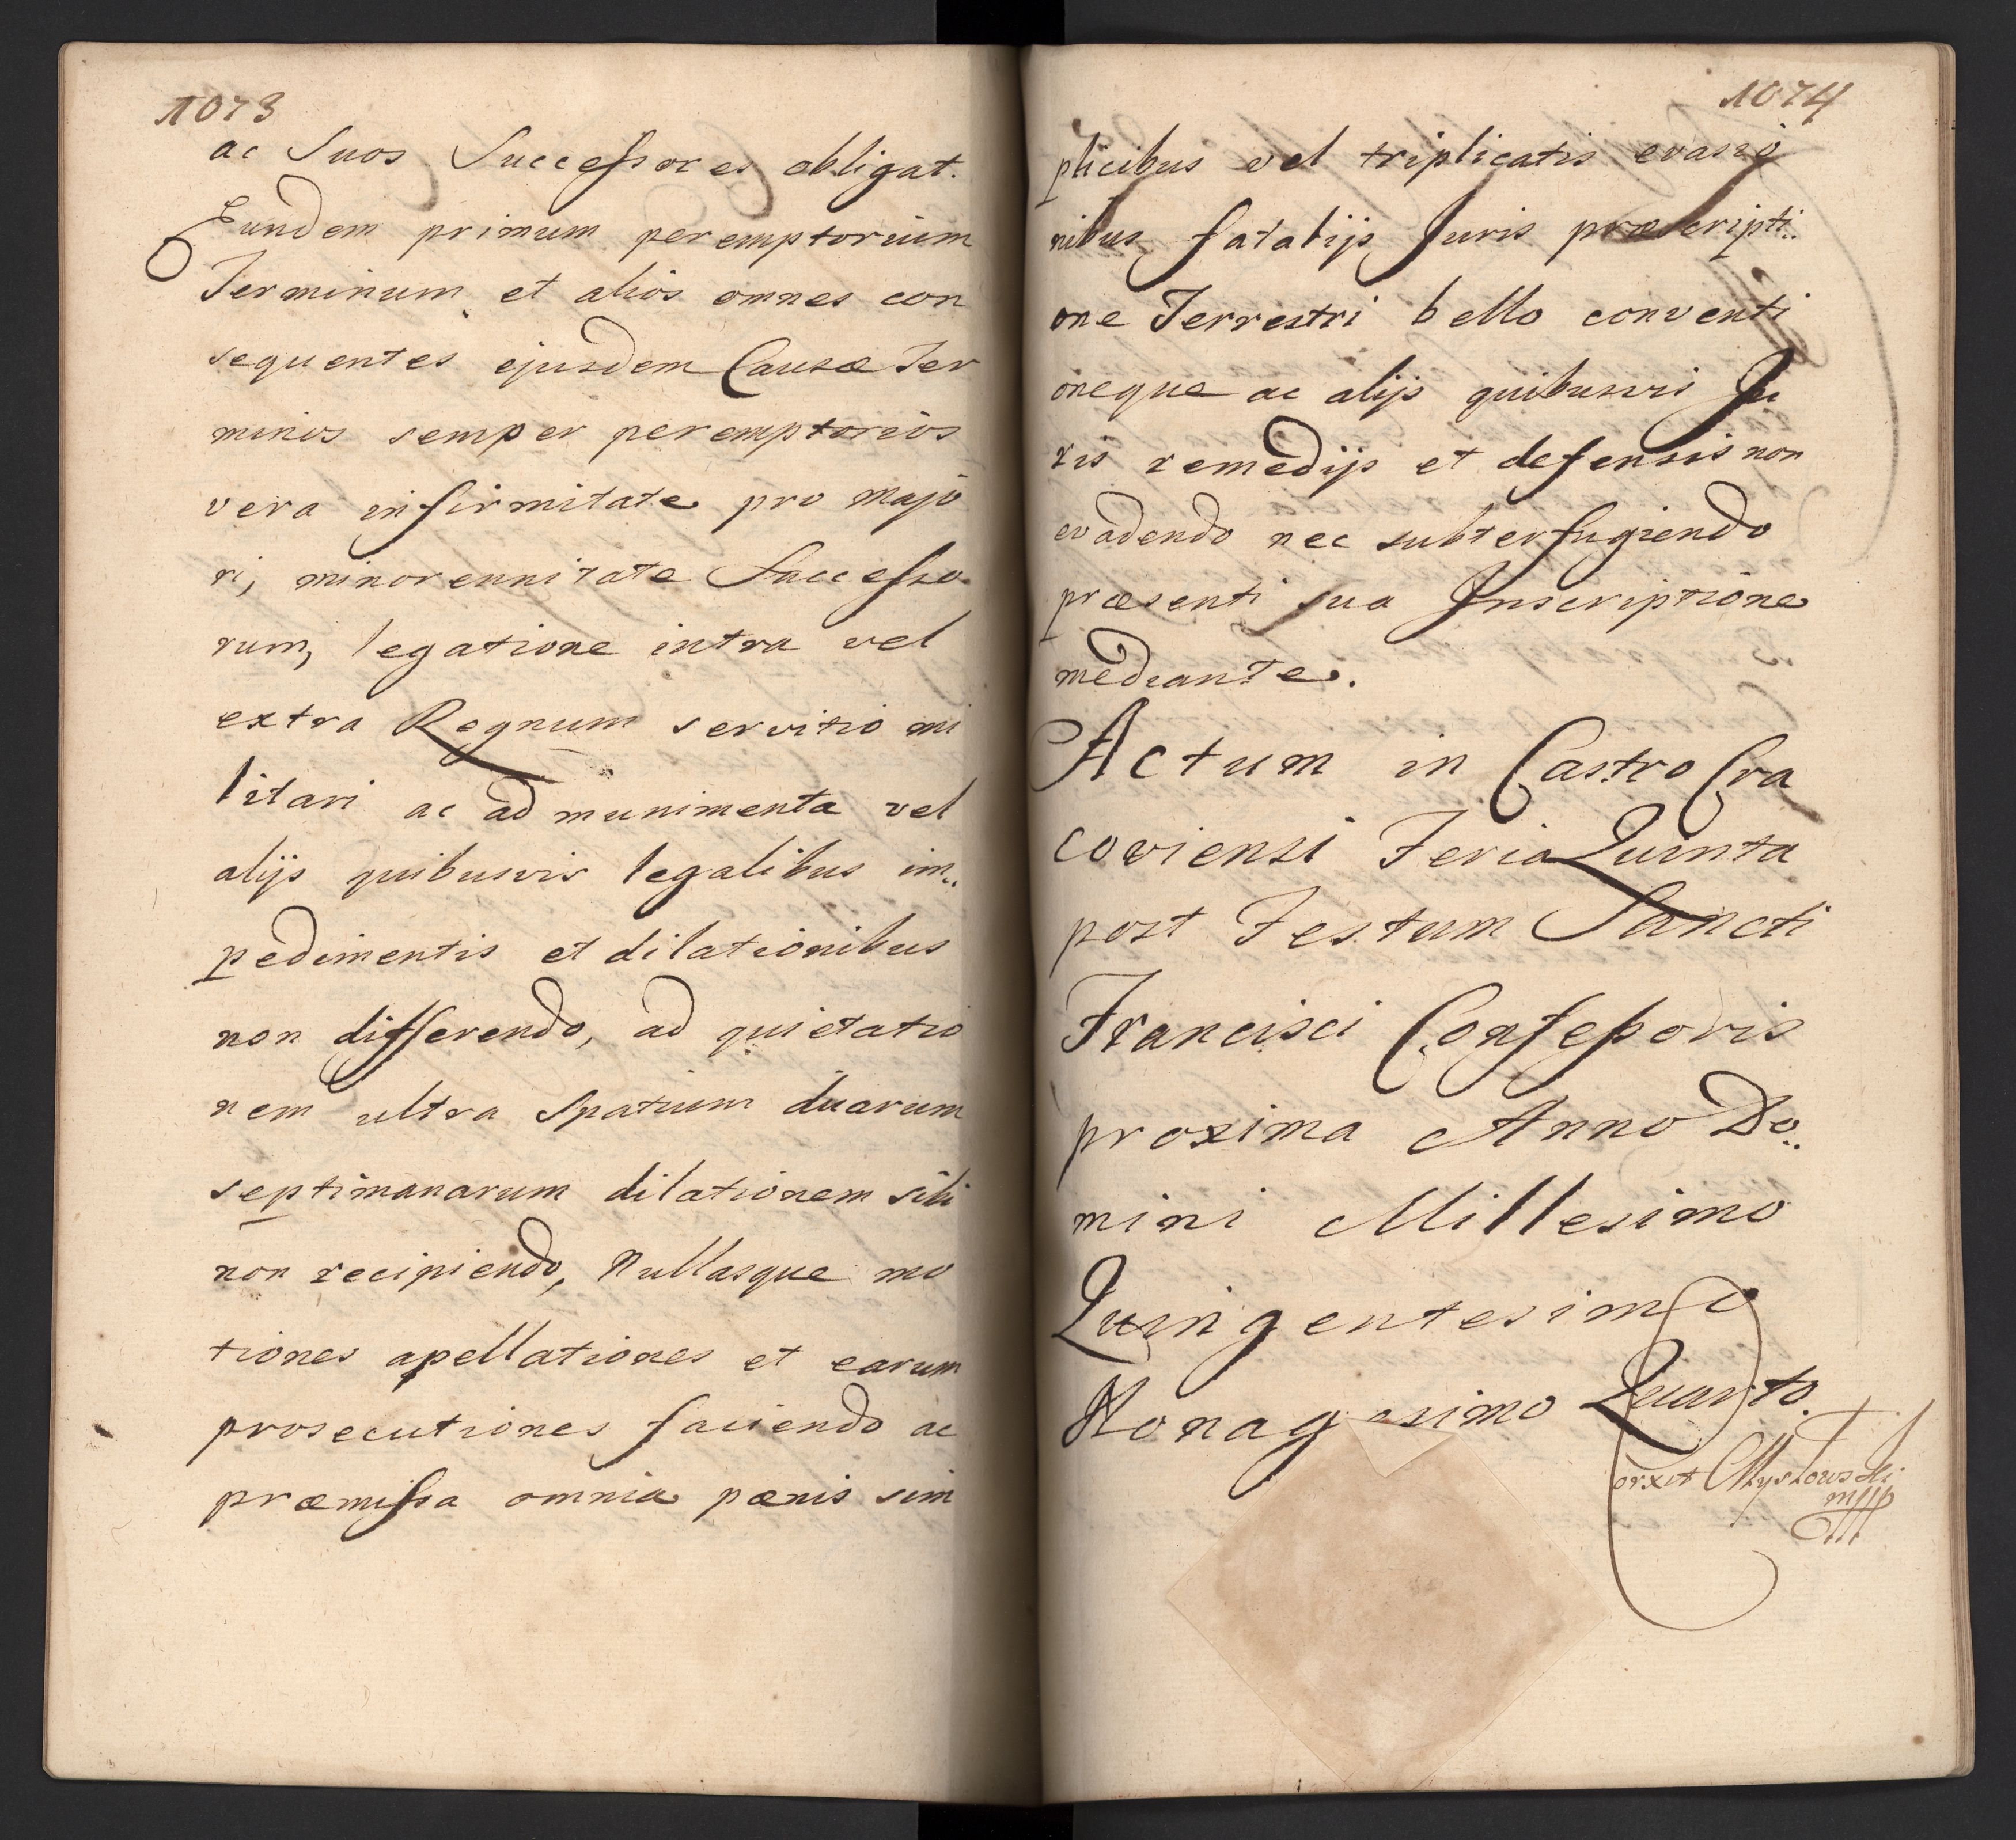 1073
ac Suos Successores obligat.
Eundem primum peremptorium
Terminum et alios omnes con
sequentes ejusdem Causæ Ter
minos semper peremptorios
vera infirmitate pro majo
ri, minorennitate Successo
rum, legatione intra vel
extra Regnum servitio mi
litari ac ad munimenta vel
alijs quibusvis legalibus im„
pedimentis et dilationibus
non differendo, ad quietatio
nem ultra Spatium duarum
septimanarum dilationem sibi
non recipiendo, Nullasque mo
tiones apellationes et earum
prosecutiones faciendo ac
præmissa omnia pænis sim
1074
plicibus vel triplicatis evasio
nibus fatalijs Juris præscripti„
one Terrestri bello conventi
oneque ac alijs quibusvis Ju
ris remedijs et defensis non
evadendo nec subterfugiendo
præsenti sua Inscriptione
mediante.
Actum in Castro Cra
coviensi Feria Quinta
post Festum Sancti
Francisci Confessoris
proxima Anno Do„
mini Millesimo
Quingentesimo
Nonagesimo Quarto.